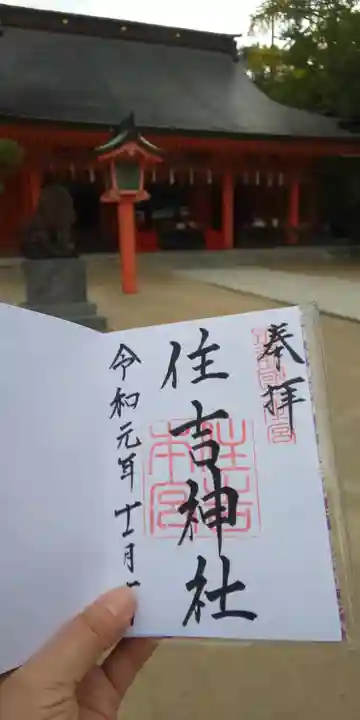 奉拝
住吉神社
令和元年十二月
住吉
本宮